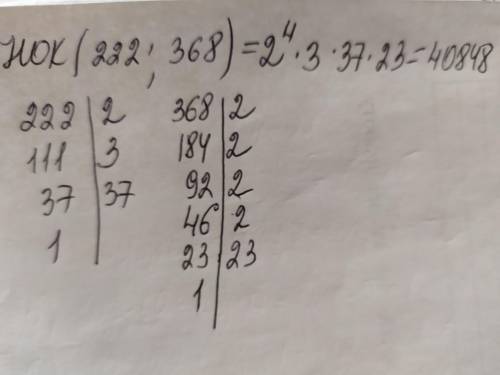 НОК(222; 368)=2⁴·3·37·23=40848
222|2
111|3
37|37
1|
368|2
184|2
92|2
46|2
23|23
1|